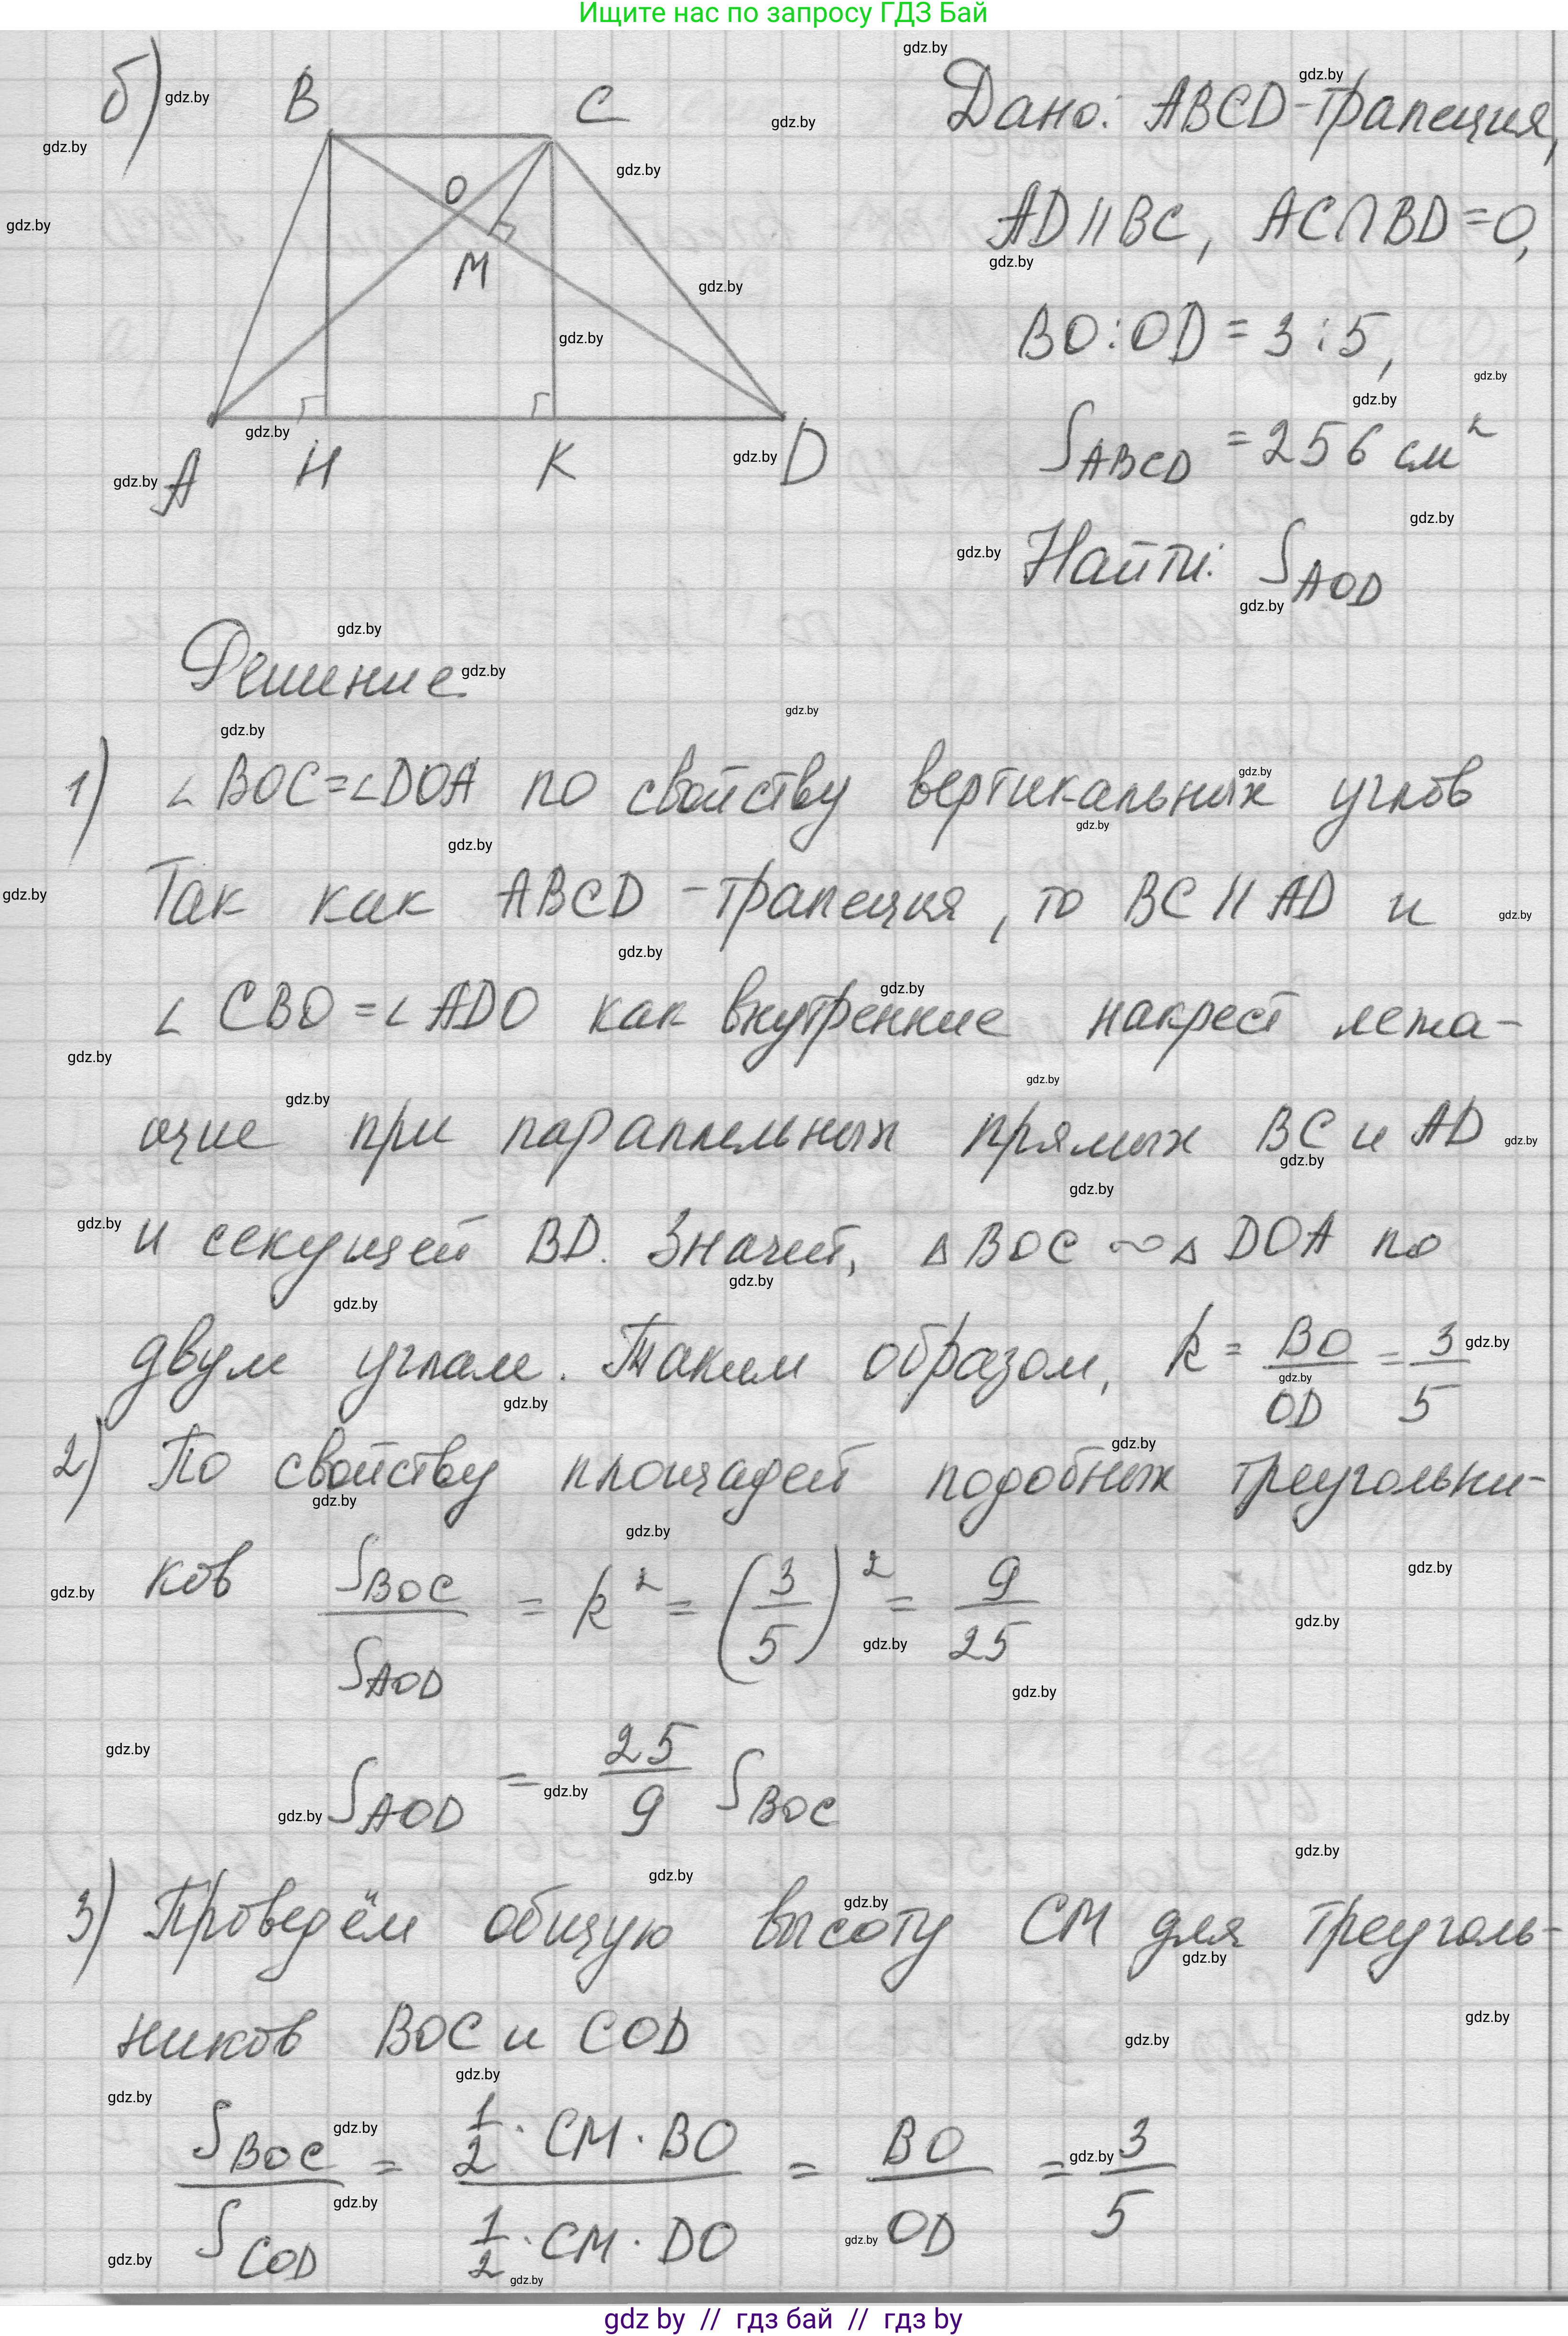 Ищите нас по запросу ГДЗ Бай
б)
B C
O
M
A H K D
Дано: ABCD-трапеция,
AD || BC, AC∩BD=O,
BO:OD = 3:5,
S_ABCD = 256 см²
Найти: S_AOD
Решение.
1) ∠BOC=∠DOA по свойству вертикальных углов
Так как ABCD - трапеция, то BC || AD и
∠CBO=∠ADO как внутренние накрест лежа-
щие при параллельных прямых BC и AD
и секущей BD. Значит, △BOC ∾ △DOA по
двум углам. Таким образом, k = BO/OD = 3/5
2) По свойству площадей подобных треугольни-
ков S_BOC/S_AOD = k² = (3/5)² = 9/25
S_AOD = 25/9 S_BOC
3) Проведём общую высоту CM для треуголь-
ников BOC и COD
S_BOC/S_COD = (1/2 · CM · BO)/(1/2 · CM · DO) = BO/OD = 3/5
gdz by // гдз бай // гдз by